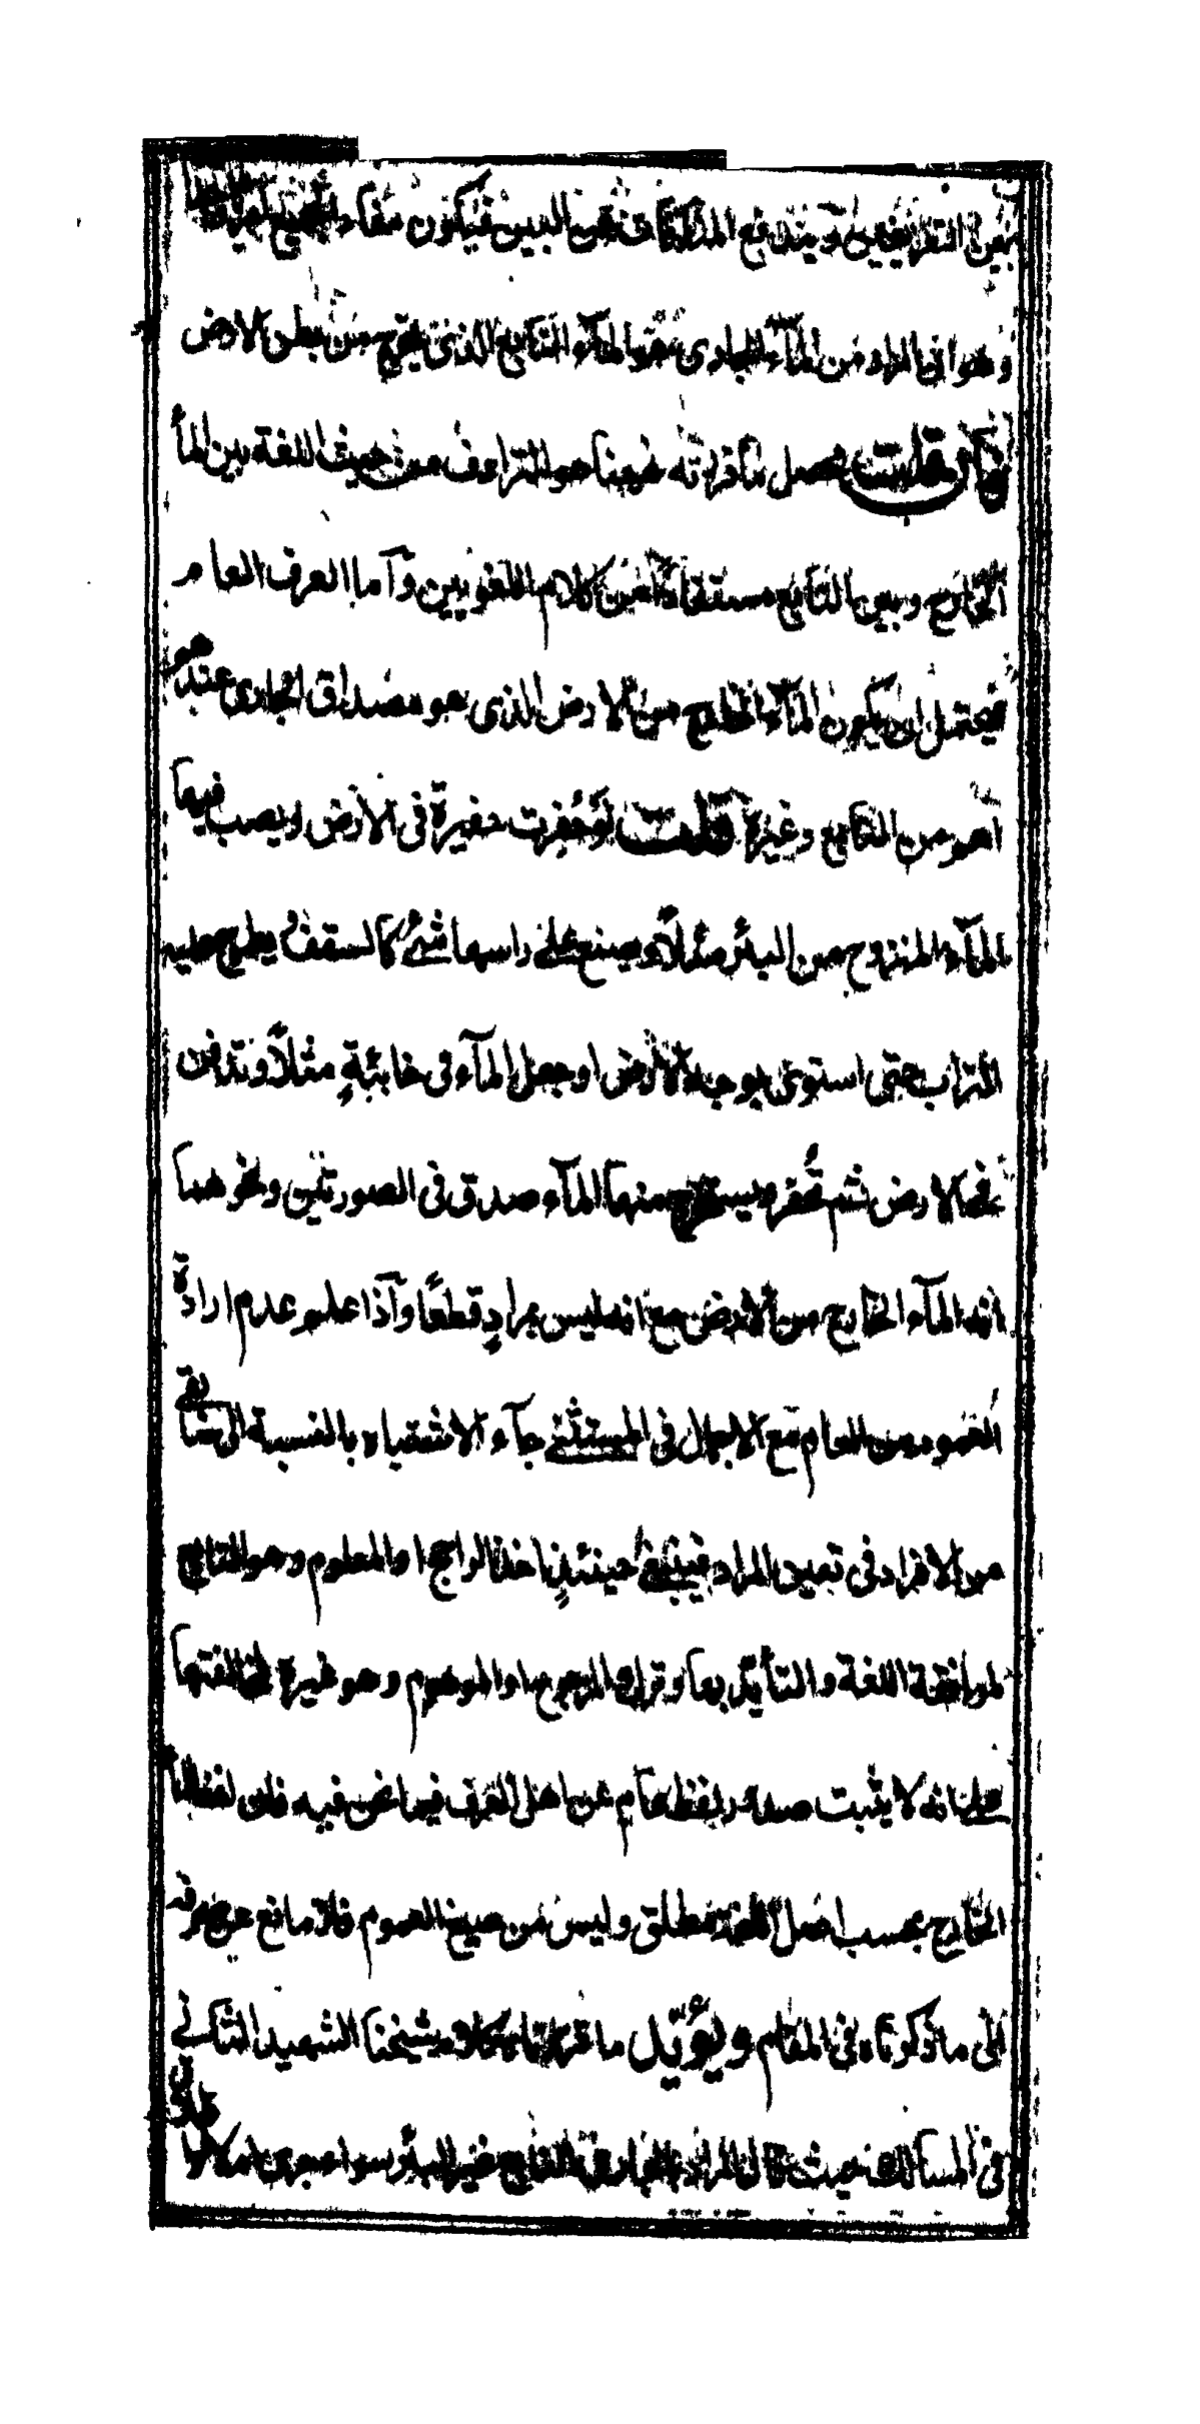 بين التعريفين ويندفع المنافات من البين فيكون مفاد الجميع
وهو ان المراد من المآء الجاري هو المآء النابع الذي يخرج من بطن الارض
فان قلت حصل ما قررته هيهنا هو الترادف من حيث اللغة بين المآء
الخارج وبين النابع مستفادًا من كلام اللغويين وآما العرف العام
فيحتمل ان يكون المآء الخارج من الارض الذى هو مصداق الجارى عندهم
اهو من النابع وغيره قلت لو حُفِرت حفيرة فى الارض ويصب فيها
المآء المنزوح من البئر مثلاً ويصنع على راسها شئ كالسقف ويطرح عليه
التراب حتى استوى بوجه الارض او جعل المآء فى خابئةٍ مثلاً وتدفن
فى الارض ثم تُحفر ويستخرج منها المآء صدق فى الصورتين ونحوهما
انه المآء الخارج من الارض مع انه ليس بمرادٍ قطعًا وآذا علم عدم ارادة
العموم من العام مع الاجمال فى المستثنى جآء الاشتباه بالنسبة الى ما بقى
من الافراد فى تعيين المراد فينبغى حينئذٍ اخذ الراجح او المعلوم وهو النابع
لموافقة اللغة والتأيّد بها وترك المرجوح او الموهوم وهو غيره لمخالفتها
على انه لا يثبت صدور لفظ عام من اهل العرف فيما نحن فيه فان لفظ المآء
الخارج بحسب اصل اللغة مطلق وليس من صيغ العموم فلا مانع عن صرفه
الى ما ذكرناه فى المقام ويؤيّد ما قررناه كلام شيخنا الشهيد الثانى
فى المسالك حيث قال المراد بالجارى النابع غير البئر سواء جرى ام لا